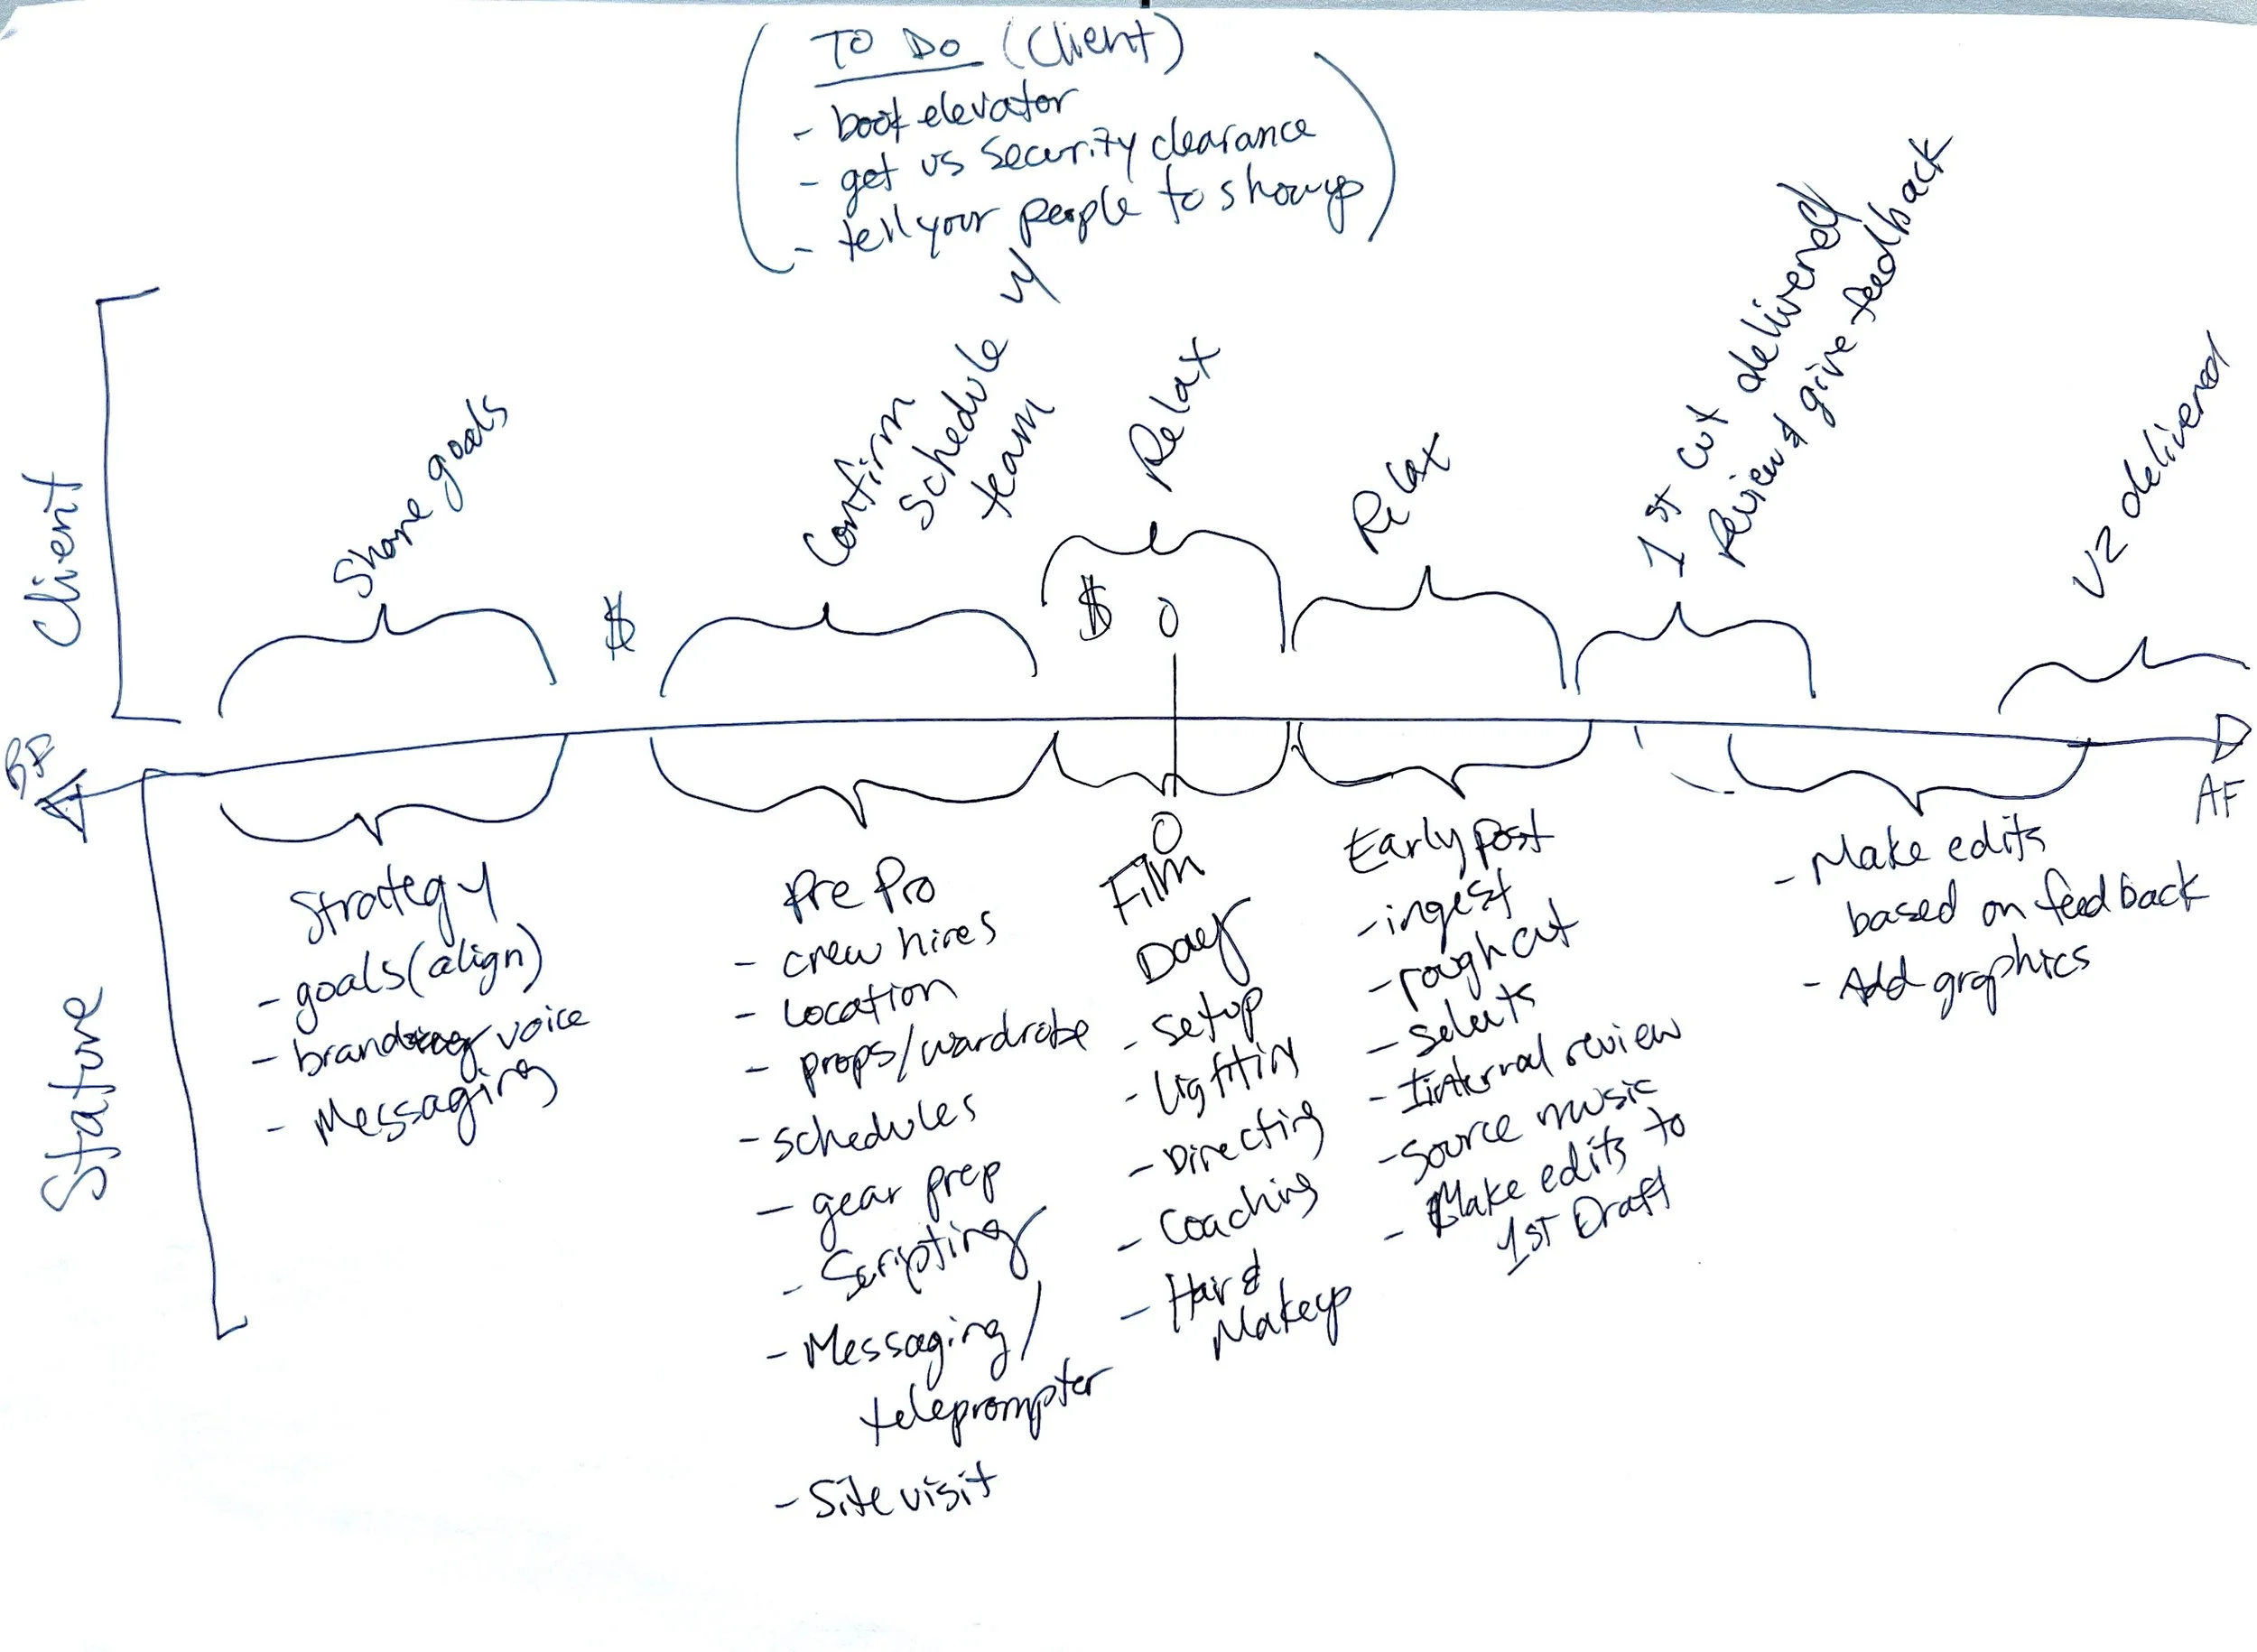 TO DO (Client)
- book elevator
- get us security clearance
- tell your people to show up
Client
Share goals
$
Confirm
schedule w/
team
Relax
$ 0
Relax
1st cut delivered
Review & give feedback
V2 delivered
BF
AF
Stature
Strategy
- goals (align)
- brand voice
- Messaging
Pre Pro
- crew hires
- Location
- props/wardrobe
- schedules
- gear prep
- Scripting/
- Messaging/
teleprompter
- Site visit
0
Film
Day
- Setup
- Lighting
- Directing
- Coaching
- Hair &
Makeup
Early post
- ingest
- rough cut
- selects
- Internal review
- Source music
- Make edits to
1st Draft
- Make edits
based on feedback
- Add graphics